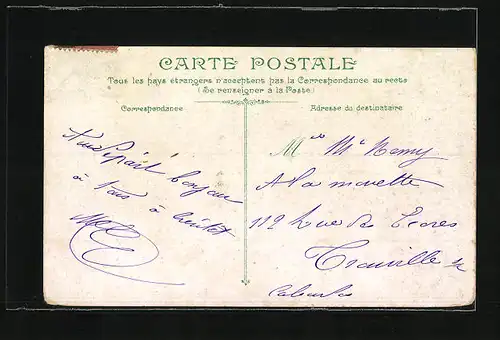 CARTE POSTALE
Tous les pays étrangers n'acceptent pas la Correspondance au recto
(Se renseigner à la Poste)
Correspondance
Adresse du destinataire
bonjour
à tous à bientôt
Mlle
A la mouette
112 Rue de
Trouville s/